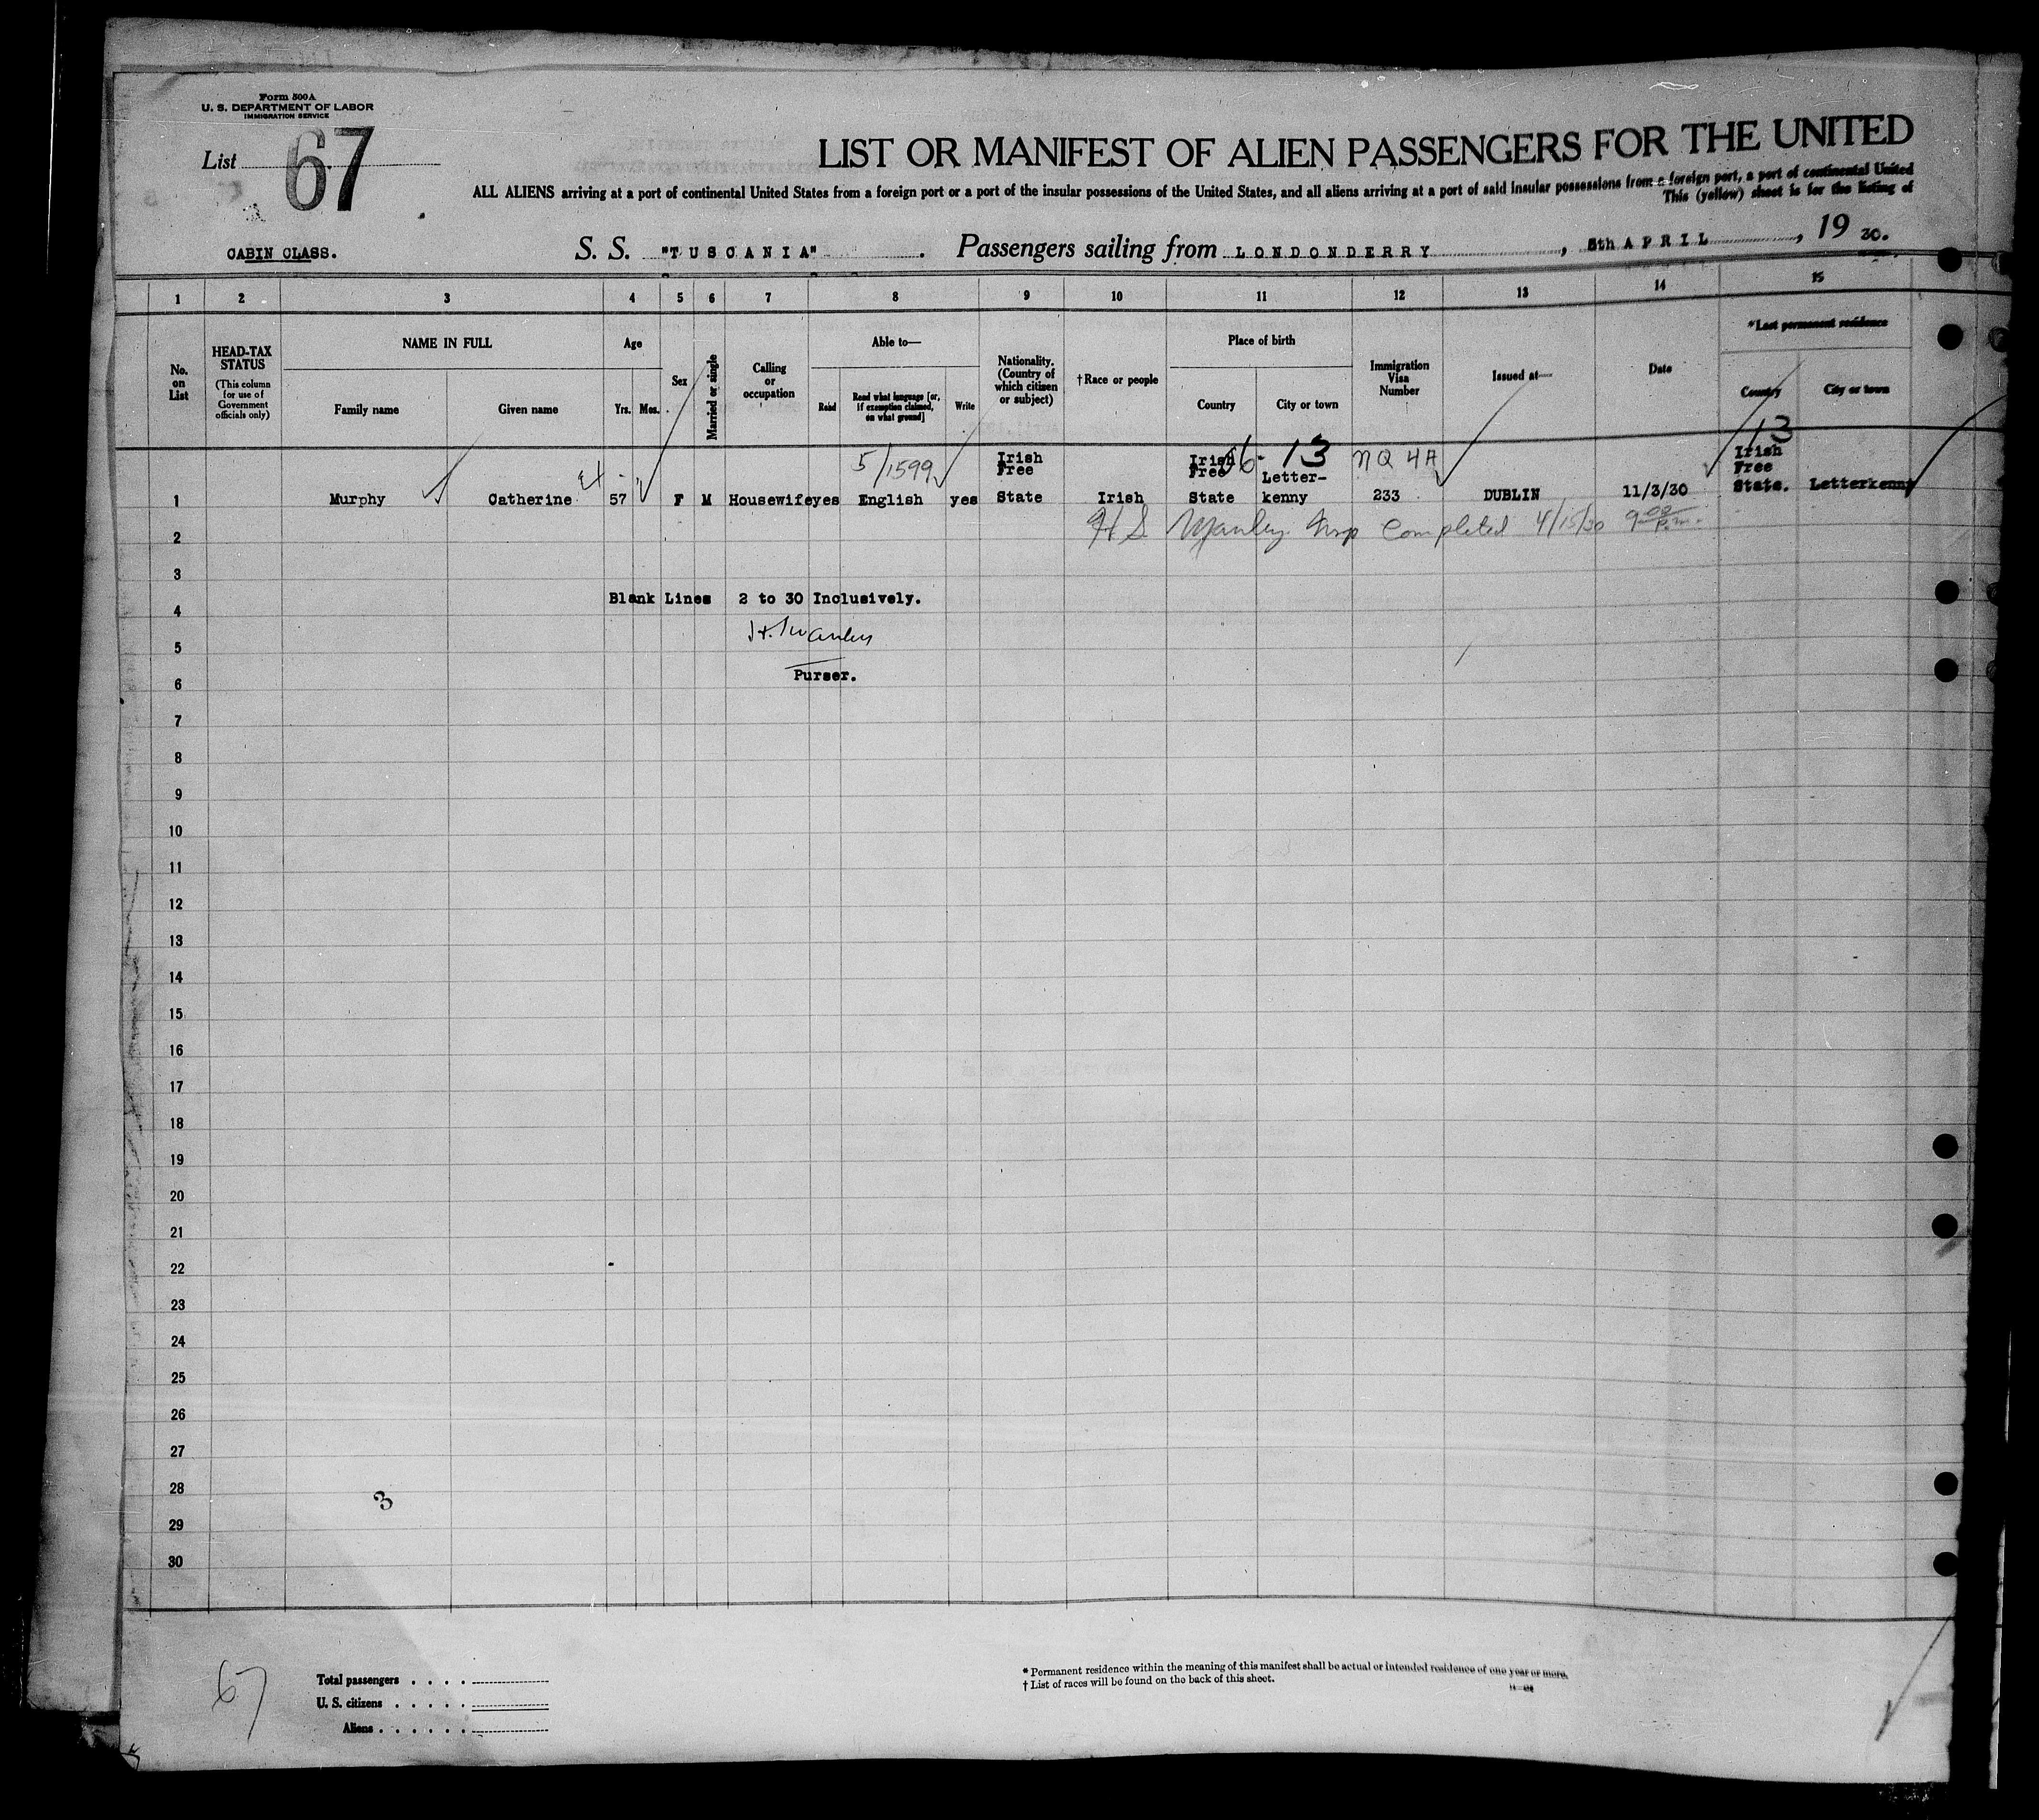 Form 500A
U. S. DEPARTMENT OF LABOR
IMMIGRATION SERVICE
List 67
LIST OR MANIFEST OF ALIEN PASSENGERS FOR THE UNITED
ALL ALIENS arriving at a port of continental United States from a foreign port or a port of the insular possessions of the United States, and all aliens arriving at a port of said insular possessions from a foreign port, a port of continental United
This (yellow) sheet is for the listing of
CABIN CLASS. S. S. "TUSCANIA" . Passengers sailing from LONDONDERRY , 5th APRIL , 19 30.
1 2 3 4 5 6 7 8 9 10 11 12 13 14 15
No. on List
HEAD-TAX STATUS
(This column for use of Government officials only)
NAME IN FULL
Family name Given name
Age
Yrs. Mos.
Sex
Married or single
Calling or occupation
Able to—
Read Read what language [or, if exemption claimed, on what ground] Write
Nationality. (Country of which citizen or subject)
† Race or people
Place of birth
Country City or town
Immigration Visa Number
Issued at—
Date
*Last permanent residence
Country City or town
5/1599 56- 13 NQ 4A 13
1 Murphy Catherine 57 F M Housewife yes English yes Irish Free State Irish Irish Free State Letter-kenny 233 DUBLIN 11/3/30 Irish Free State. Letterkenny
2 H S Manley Insp Completed 4/15/30 9 00 P.m.
3
Blank Lines 2 to 30 Inclusively.
4
5
Purser.
6
7
8
9
10
11
12
13
14
15
16
17
18
19
20
21
22
23
24
25
26
27
28
3
29
30
67
Total passengers . . . .
U. S. citizens . . . . .
Aliens . . . . . .
* Permanent residence within the meaning of this manifest shall be actual or intended residence of one year or more.
† List of races will be found on the back of this sheet.